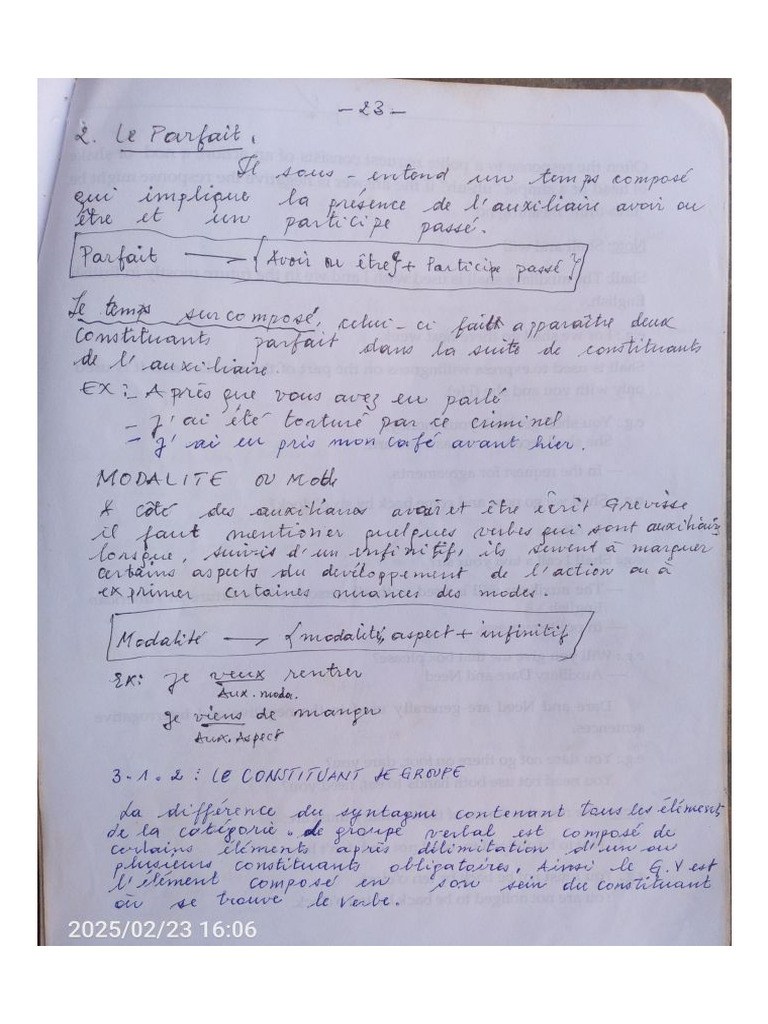 - 23 -
2. Le Parfait.
Il sous-entend un temps composé
qui implique la presence de l'auxiliaire avoir ou
être et un participe passé.
Parfait → { Avoir ou être } + Participe passé }
Le temps surcomposé, celui-ci fait apparaître deux
constituants parfait dans la suite de constituants
de l'auxiliaire.
EX: - Après que vous avez eu parlé
- J'ai été torturé par ce criminel
- J'ai eu pris mon café avant hier.
MODALITE OU Mode
A côté des auxiliaires avoir et être écrit Grevisse
il faut mentionner quelques verbes qui sont auxiliaires
lorsque, suivis d'un infinitif, ils servent à marquer
certains aspects du développement de l'action ou à
exprimer certaines nuances des modes.
Modalité → { modalité, aspect + infinitif
Ex: je veux rentrer
Aux. moda.
je viens de manger
Aux. Aspect
3-1-2: LE CONSTITUANT DE GROUPE
La différence du syntagme contenant tous les éléments
de la catégorie. de groupe verbal est composé de
certains éléments après délimitation d'un ou
plusieurs constituants obligatoires. Ainsi le G.V est
l'élément composé en son sein du constituant
où se trouve le verbe.
2025/02/23 16:06